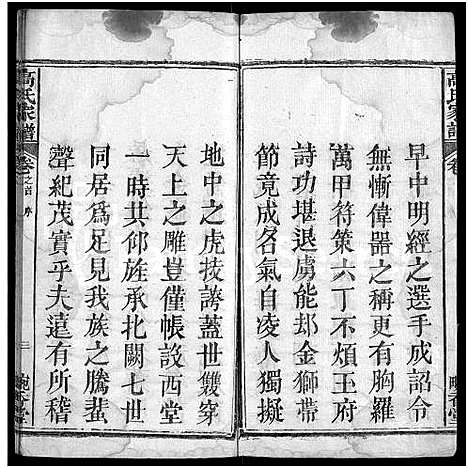 高氏家譜
卷
早中明經之選手成詔令
無慚偉器之稱更有胸羅
萬甲符策六丁不煩玉府
詩功堪退虜能却金獅帶
節竟成名氣自凌人獨擬
地中之虎技誇蓋世雙穿
天上之雕豈僅帳設西堂
一時共仰旌承北闕七世
同居爲足見我族之騰蜚
聲紀茂實乎夫遠有所稽
高氏家譜
卷之首 序
三